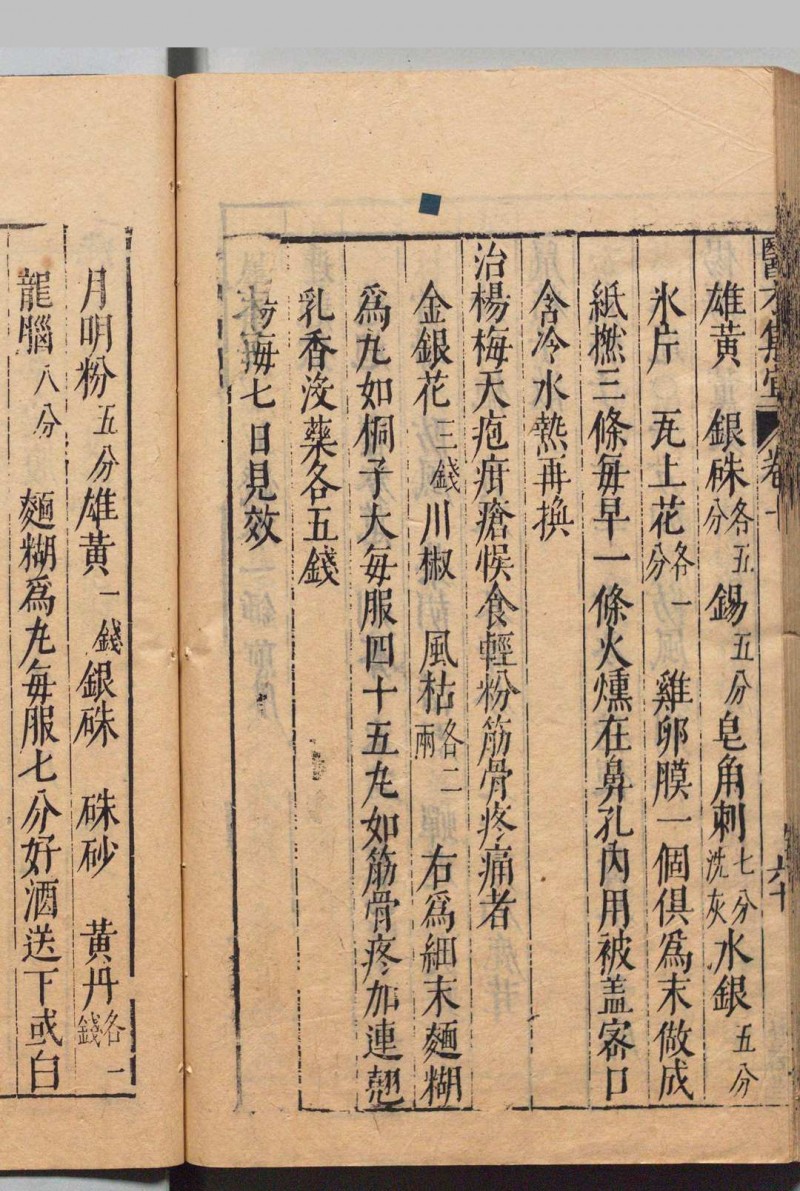 雄黃 銀硃各五分 錫五分 皂角刺七分洗灰 水銀五分
氷片 瓦上花各一分 雞卵膜一個俱為末做成
紙撚三條每早一條火燻在鼻孔內用被盖密口
含冷水熱再換
治楊梅天疱疳瘡悞食輕粉筋骨疼痛者
金銀花三錢 川椒 風枯各二兩 右為細末麵糊
為丸如桐子大每服四十五丸如筋骨疼加連翹
乳香沒藥各五錢
七日見效
月明粉五分 雄黃一錢 銀硃 硃砂 黃丹各一錢
龍腦八分 麵糊為丸每服七分好酒送下或白